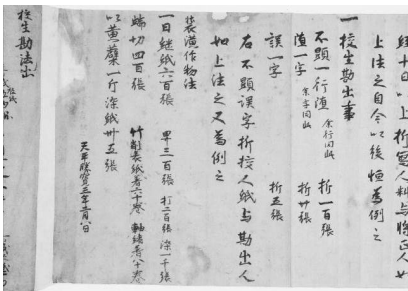 経十日以上折寫人料与勝正人也
上法之自今以後恒為例之
一校生勘出事
不顕一行堕 余行同此 折一百張
堕一字 余字同此 折廿張
誤一字 折五張
右不顕誤字折校人紙与勘出人
如上法之又為例之
装潢作物法
一日継紙六百張 界三百張 打二百張 染一千張
端切四百張 竹削表紙着六十巻 軸緒着八十巻
以黄蘗一斤染紙卅五張
天平勝寶三年二月八日
校生勘法出